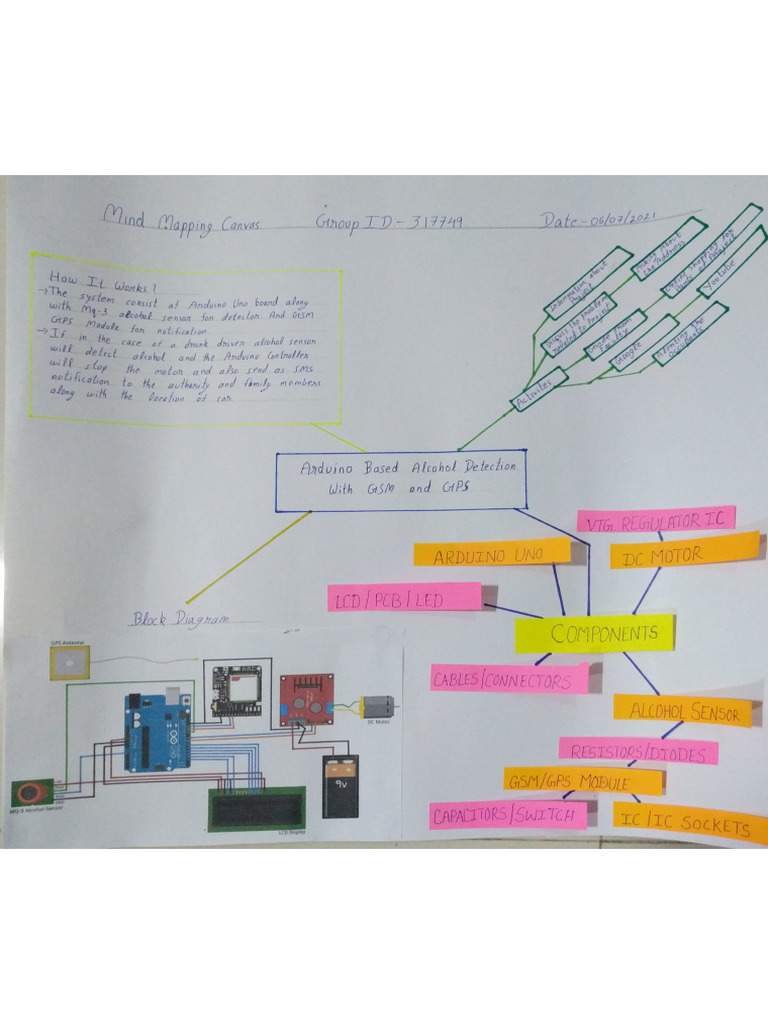 Mind Mapping Canvas Group ID:- 317749 Date:- 06/07/2021
How It Works!
→ The system consist of Arduino Uno board along
with Mq-3 alcohol sensor for detector. And GSM
GPS Module for notification.
→ If in the case of a drunk driven alcohol sensor
will detect alcohol and the Arduino Controller
will stop the motor and also send as SMS
notification to the authority and family members
along with the location of car.
Information about
Project
Discuss the problem
related to Project
about
the address
Online shopping for
Parts of Project
Youtube
Google
the
documents
Activites
Arduino Based Alcohol Detection
With GSM and GPS
VTG REGULATOR IC
ARDUINO UNO
DC MOTOR
LCD / PCB / LED
COMPONENTS
CABLES/CONNECTORS
ALCOHOL SENSOR
RESISTORS/DIODES
GSM/GPS MODULE
CAPACITORS/SWITCH
IC / IC SOCKETS
Block Diagram
GPS Antenna
DC Motor
9v
MQ-3 Alcohol Sensor
LCD Display